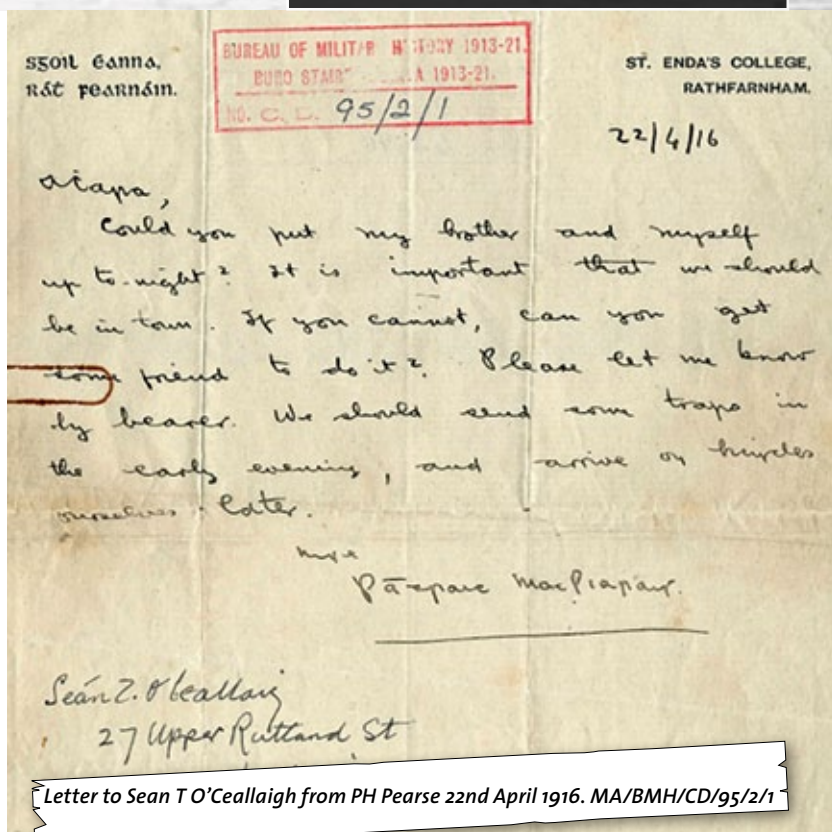 Sgoil Éanna,
Ráṫ Fearnáin.
BUREAU OF MILITARY HISTORY 1913-21.
BURO STAIRE 1913-21.
NO. C. D. 95/2/1
ST. ENDA'S COLLEGE,
RATHFARNHAM.
22/4/16
A ċara,
Could you put my brother and myself
up to-night? It is important that we should
be in town. If you cannot, can you get
some friend to do it? Please let me know
by bearer. We should send some traps in
the early evening, and arrive on bicycles
ourselves later.
Mise
Pádraic MacPiarais.
Seán T. O Ceallaiġ
27 Upper Rutland St
Letter to Sean T O'Ceallaigh from PH Pearse 22nd April 1916. MA/BMH/CD/95/2/1